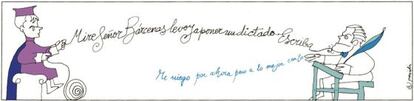 Mire Señor Bárcenas le voy a poner un dictado. Escriba
Me niego por ahora pero a lo mejor canto